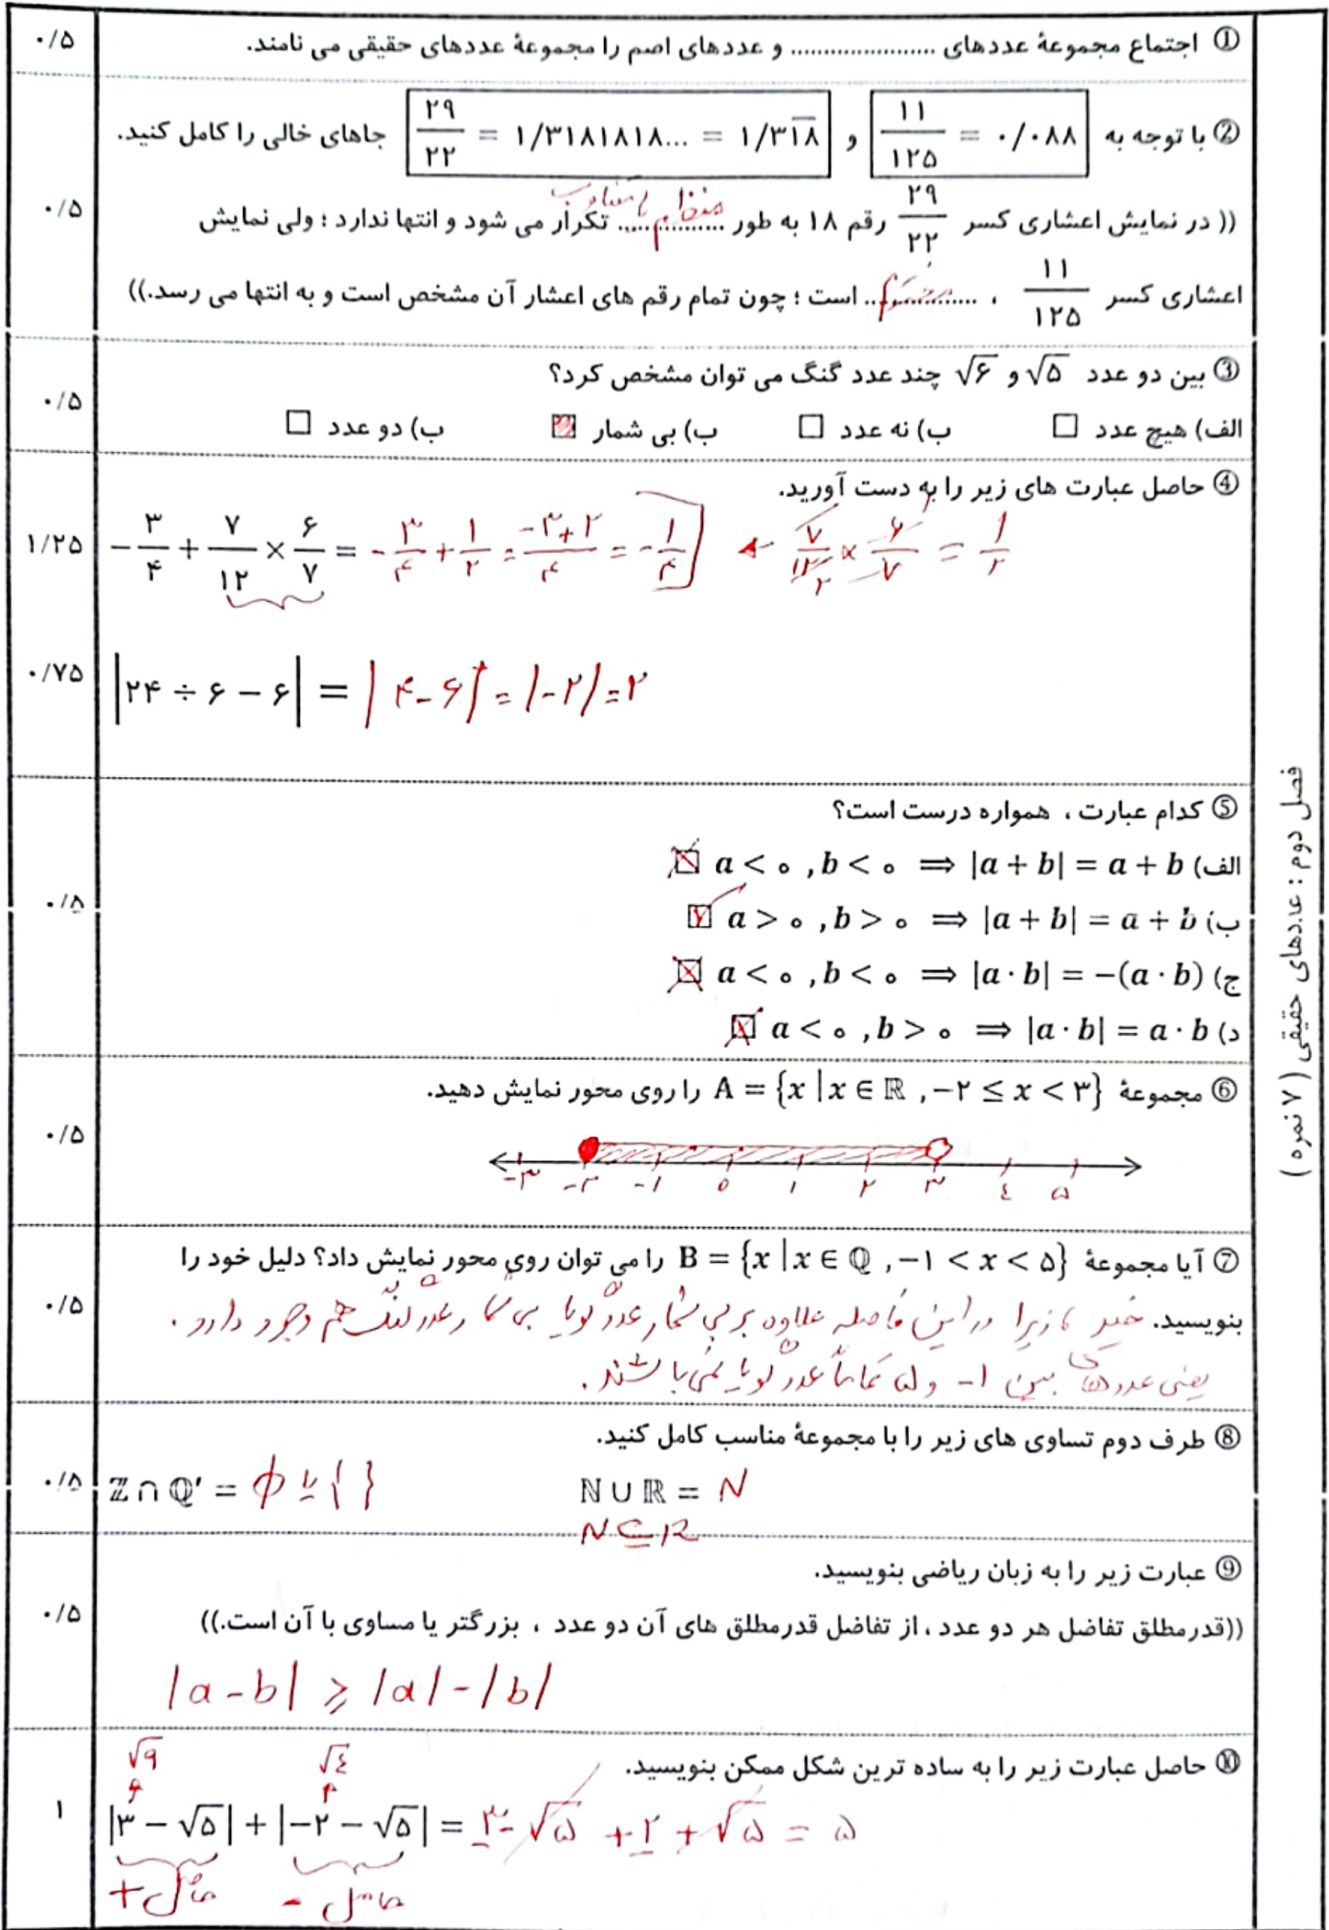 ① اجتماع مجموعهٔ عددهای ...................... و عددهای اصم را مجموعهٔ عددهای حقیقی می نامند. ۰/۵
② با توجه به ۱۱/۱۲۵ = ۰/۰۸۸ و ۲۹/۲۲ = ۱/۳۱۸۱۸۱۸... = ۱/۳۱۸ جاهای خالی را کامل کنید.
منظم / متناوب
(( در نمایش اعشاری کسر ۲۹/۲۲ رقم ۱۸ به طور ................ تکرار می شود و انتها ندارد ؛ ولی نمایش ۰/۵
اعشاری کسر ۱۱/۱۲۵ ، ................ مختوم است ؛ چون تمام رقم های اعشار آن مشخص است و به انتها می رسد.))
③ بین دو عدد √۵ و √۶ چند عدد گنگ می توان مشخص کرد؟ ۰/۵
الف) هیچ عدد □ ب) نه عدد □ ب) بی شمار ▨ ب) دو عدد □
④ حاصل عبارت های زیر را به دست آورید.
−۳/۴ + ۷/۱۲ × ۶/۷ = −۳/۴ + ۱/۲ = −۳+۲/۴ = −۱/۴ ← ۷/۱۲ × ۶/۷ = ۱/۲ ۱/۲۵
|۲۴ ÷ ۶ − ۶| = |۴−۶| = |−۲| = ۲ ۰/۷۵
فصل دوم : عددهای حقیقی ( ۷ نمره )
⑤ کدام عبارت ، همواره درست است؟ ۰/۵
الف) a < ۰ , b < ۰ ⟹ |a + b| = a + b ☒
ب) a > ۰ , b > ۰ ⟹ |a + b| = a + b ☑
ج) a < ۰ , b < ۰ ⟹ |a · b| = −(a · b) ☒
د) a < ۰ , b > ۰ ⟹ |a · b| = a · b ☒
⑥ مجموعهٔ A = {x | x ∈ ℝ , −۲ ≤ x < ۳} را روی محور نمایش دهید. ۰/۵
−۳ −۲ −۱ ۰ ۱ ۲ ۳ ٤ ۵
⑦ آیا مجموعهٔ B = {x | x ∈ ℚ , −۱ < x < ۵} را می توان روی محور نمایش داد؟ دلیل خود را
بنویسید. خیر ، زیرا در این فاصله علاوه بر بی شمار عدد گویا بی شمار عدد گنگ هم وجود دارد . ۰/۵
یعنی عددهای بین ۱− و ۵ تماماً عدد گویا نمی باشند .
⑧ طرف دوم تساوی های زیر را با مجموعهٔ مناسب کامل کنید.
ℤ ∩ ℚ′ = ϕ یا { } ℕ ∪ ℝ = N ۰/۵
N ⊆ R
⑨ عبارت زیر را به زبان ریاضی بنویسید.
((قدرمطلق تفاضل هر دو عدد ، از تفاضل قدرمطلق های آن دو عدد ، بزرگتر یا مساوی با آن است.)) ۰/۵
|a − b| ⩾ |a| − |b|
⑩ حاصل عبارت زیر را به ساده ترین شکل ممکن بنویسید.
√۹ √٤
|۳ − √۵| + |−۲ − √۵| = ۳ − √۵ + ۲ + √۵ = ۵ ۱
حاصل + حاصل −